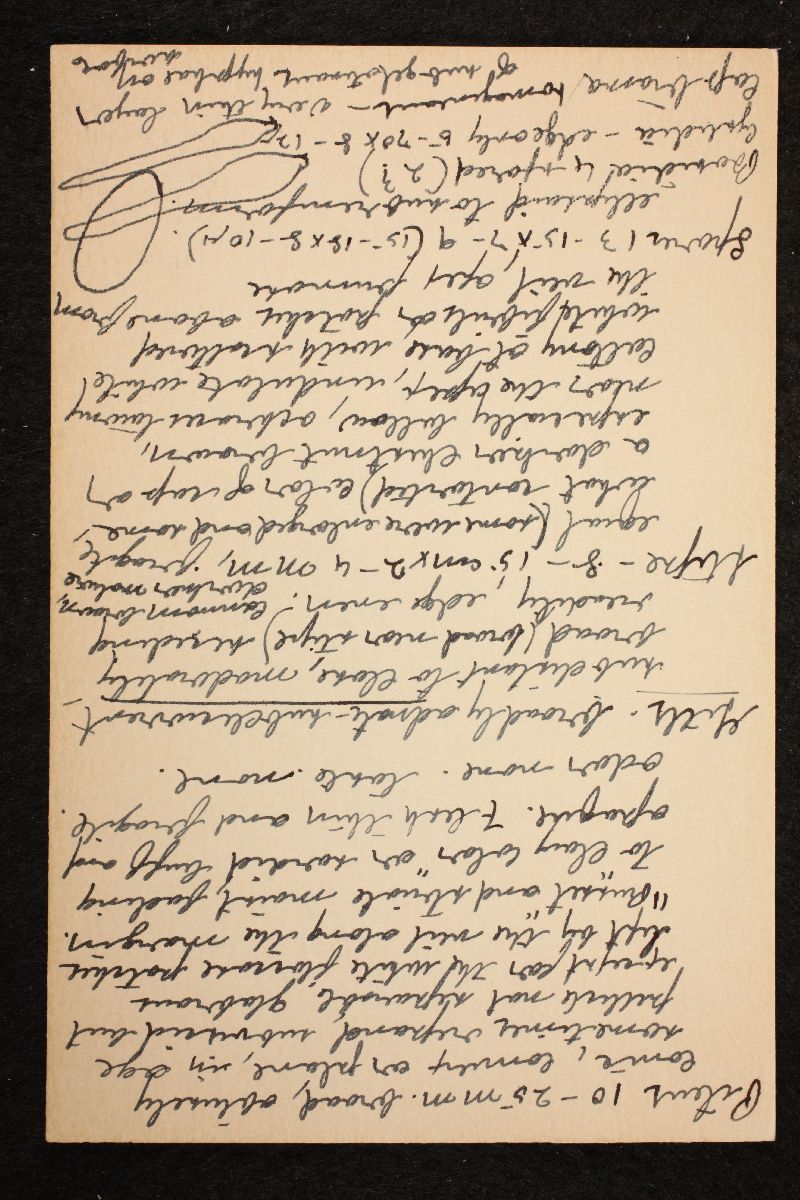 Pileus 10 - 25 mm. broad, obtusely
conic, convex or plane, in age
sometimes repand, subviscid but
pellicle not separable, glabrous
except for the white fibrose patches
left by the veil along the margin.
"Russet" and striate moist, fading
to "clay color" or sordid buff and
opaque. Flesh thin and fragile.
odor none. taste none.
Gills. broadly adnate-subdecurrent
subdistant to close, moderately
broad (broad near stipe) seceding
readily, edge even. cinnamon brown,
darker mature
Stipe - 8 - 15 cm x 2 - 4 mm, fragile,
equal (some were enlarged and some-
what contorted) color of cap or
a darker chestnut brown,
especially below, appears tawny
near the apex, undulate white
cottony at base with scattered
white fibrils or patches above from
the veil, apex pruinose
Spores 13 - 15 x 7 - 9 (15 - 18 x 8 - 10 µ).
ellipsoid to subreniform.
Basidia 4 spored (2?)
Cystidia - edge only 5 - 70 x 8 - 12
Cap trama homogeneous - very thin layer
of subgelatinous hyphae on
surface